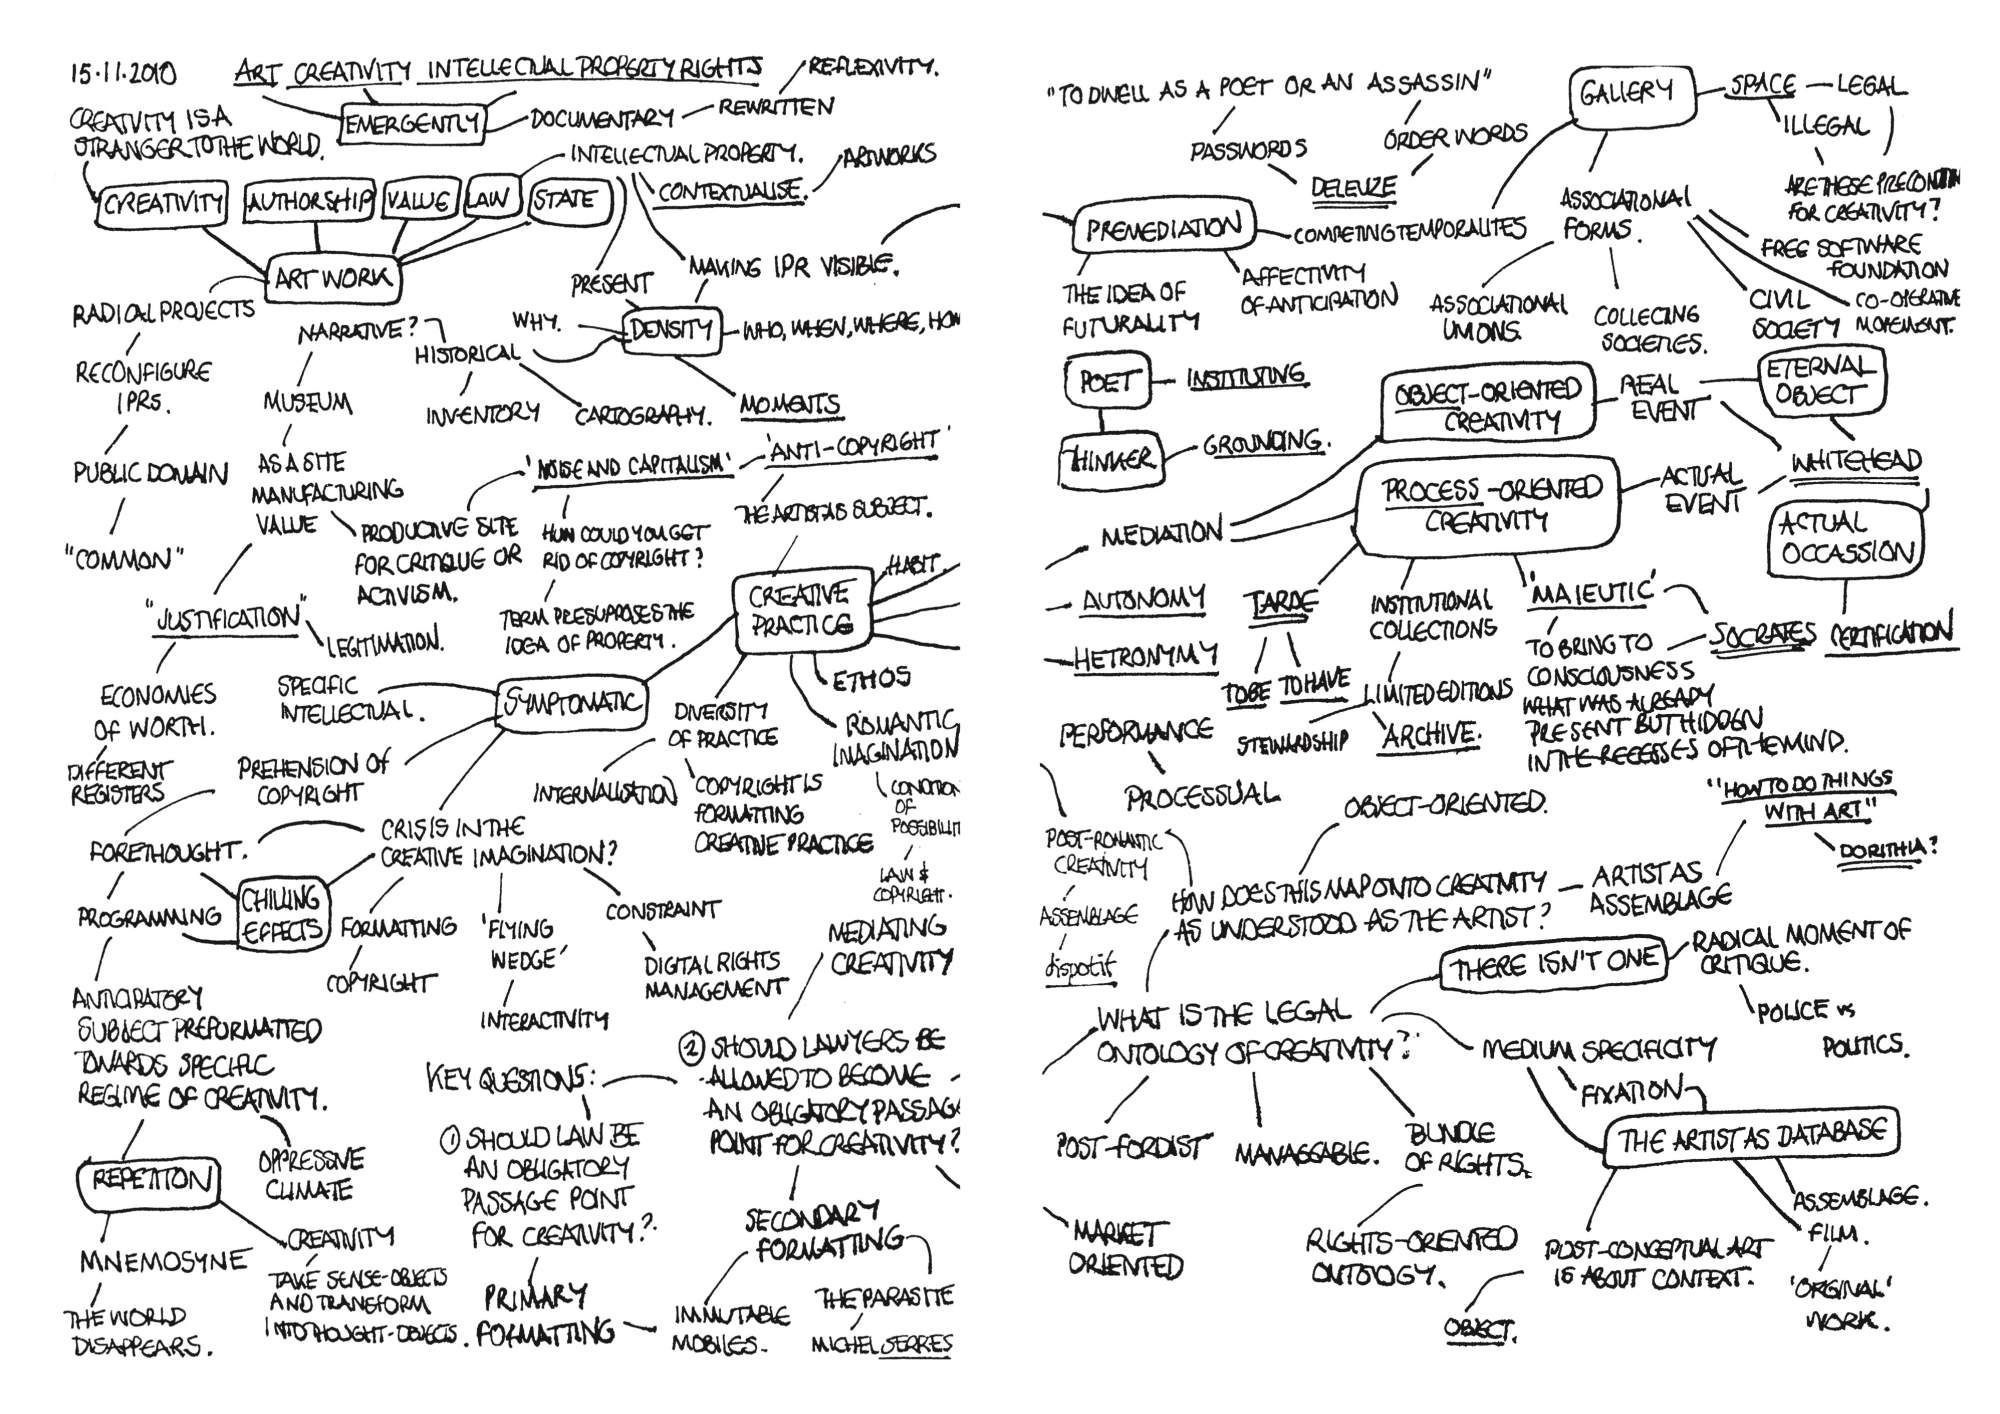 15.11.2010
ART CREATIVITY INTELLECTUAL PROPERTY RIGHTS
REFLEXIVITY.
CREATIVITY IS A
STRANGER TO THE WORLD.
EMERGENTLY
DOCUMENTARY
REWRITTEN
INTELLECTUAL PROPERTY.
CONTEXTUALISE.
ARTWORKS
CREATIVITY
AUTHORSHIP
VALUE
LAW
STATE
ART WORK
PRESENT
MAKING IPR VISIBLE.
RADICAL PROJECTS
NARRATIVE?
HISTORICAL
WHY.
DENSITY
WHO, WHEN, WHERE, HOW
RECONFIGURE
IPRS.
MUSEUM
INVENTORY
CARTOGRAPHY.
MOMENTS
PUBLIC DOMAIN
AS A SITE
MANUFACTURING
VALUE
'NOISE AND CAPITALISM'
'ANTI-COPYRIGHT'
THE ARTIST AS SUBJECT.
"COMMON"
PRODUCTIVE SITE
FOR CRITIQUE OR
ACTIVISM.
HOW COULD YOU GET
RID OF COPYRIGHT?
HABIT.
CREATIVE
PRACTICE
"JUSTIFICATION"
LEGITIMATION.
TERM PRESUPPOSES THE
IDEA OF PROPERTY.
ETHOS
ECONOMIES
OF WORTH.
SPECIFIC
INTELLECTUAL.
SYMPTOMATIC
DIVERSITY
OF PRACTICE
ROMANTIC
IMAGINATION
DIFFERENT
REGISTERS
PREHENSION OF
COPYRIGHT
INTERNALISATION
COPYRIGHT IS
FORMATTING
CREATIVE PRACTICE
CONDITION
OF
POSSIBILIT
LAW &
COPYRIGHT.
FORETHOUGHT.
CRISIS IN THE
CREATIVE IMAGINATION?
PROGRAMMING
CHILLING
EFFECTS
FORMATTING
COPYRIGHT
'FLYING
WEDGE'
INTERACTIVITY
CONSTRAINT
DIGITAL RIGHTS
MANAGEMENT
MEDIATING
CREATIVITY
ANTICIPATORY
SUBJECT PREFORMATTED
TOWARDS SPECIFIC
REGIME OF CREATIVITY.
KEY QUESTIONS:
② SHOULD LAWYERS BE
ALLOWED TO BECOME
AN OBLIGATORY PASSAG
POINT FOR CREATIVITY?
① SHOULD LAW BE
AN OBLIGATORY
PASSAGE POINT
FOR CREATIVITY?.
OPPRESSIVE
CLIMATE
REPETITON
MNEMOSYNE
THE WORLD
DISAPPEARS.
CREATIVITY
TAKE SENSE-OBJECTS
AND TRANSFORM
INTO THOUGHT-OBJECTS.
PRIMARY
FORMATTING
SECONDARY
FORMATTING
IMMUTABLE
MOBILES.
THE PARASITE
MICHEL SERRES
"TO DWELL AS A POET OR AN ASSASSIN"
PASSWORDS
ORDER WORDS
DELEUZE
GALLERY
SPACE
LEGAL
ILLEGAL
ARE THESE PRECONDITI
FOR CREATIVITY?
PREMEDIATION
COMPETING TEMPORALITES
ASSOCIATIONAL
FORMS.
FREE SOFTWARE
FOUNDATION
THE IDEA OF
FUTURALITY
AFFECTIVITY
OF ANTICIPATION
ASSOCIATIONAL
UNIONS.
COLLECING
SOCIETIES.
CIVIL
SOCIETY
CO-OPERATIVE
MOVEMENT.
POET
INSTITUTING
THINKER
GROUNDING.
OBJECT-ORIENTED
CREATIVITY
REAL
EVENT
ETERNAL
OBJECT
PROCESS-ORIENTED
CREATIVITY
ACTUAL
EVENT
WHITEHEAD
MEDIATION
ACTUAL
OCCASSION
AUTONOMY
TARDE
INSTITUTIONAL
COLLECTIONS
'MAIEUTIC'
SOCRATES
CERTIFICATION
HETRONYMY
TO BE
TO HAVE
LIMITED EDITIONS
STEWARDSHIP
ARCHIVE.
TO BRING TO
CONSCIOUSNESS
WHAT WAS ALREADY
PRESENT BUT HIDDEN
IN THE RECESSES OF THE MIND.
PERFORMANCE
PROCESSUAL
OBJECT-ORIENTED.
"HOW TO DO THINGS
WITH ART"
DORITHIA?
POST-ROMANTIC
CREATIVITY
ASSEMBLAGE
dispotif
HOW DOES THIS MAP ONTO CREATIVITY
AS UNDERSTOOD AS THE ARTIST?
ARTIST AS
ASSEMBLAGE
THERE ISN'T ONE
RADICAL MOMENT OF
CRITIQUE.
POLICE vs
POLITICS.
WHAT IS THE LEGAL
ONTOLOGY OF CREATIVITY?
MEDIUM SPECIFICITY
FIXATION
THE ARTIST AS DATABASE
POST-FORDIST
MANAGEABLE.
BUNDLE
OF RIGHTS.
MARKET
ORIENTED
RIGHTS-ORIENTED
ONTOLOGY.
POST-CONCEPTUAL ART
IS ABOUT CONTEXT.
OBJECT.
ASSEMBLAGE.
FILM.
'ORGINAL'
WORK.